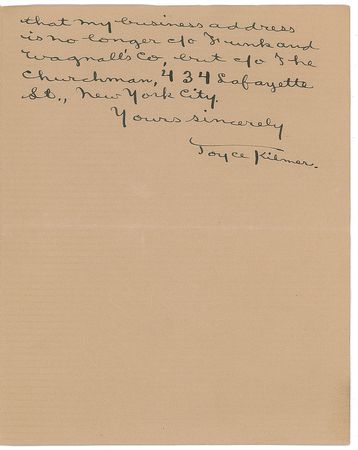 that my business address
is no longer c/o Funk and
Wagnall's Co, but c/o The
Churchman, 434 Lafayette
St., New York City.
Yours sincerely
Joyce Kilmer.